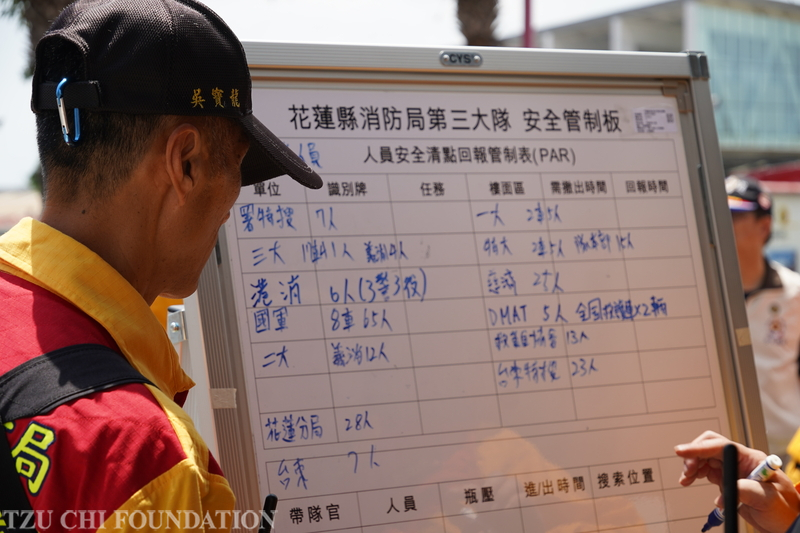 CYS
吳寶龍
花蓮縣消防局第三大隊 安全管制板
員
人員安全清點回報管制表(PAR)
單位 識別牌 任務 樓面區 需撤出時間 回報時間
署特搜 7人 一大 2車5人
三大 特大 2車5人 15人
港消 6人(3警3役) 慈濟 27人
國軍 8車65人 DMAT 5人 全國 x2輛
二大 義消12人 13人
台東特搜 23人
花蓮分局 28人
台東 7人
帶隊官 人員 瓶壓 進/出時間 搜索位置
局
TZU CHI FOUNDATION